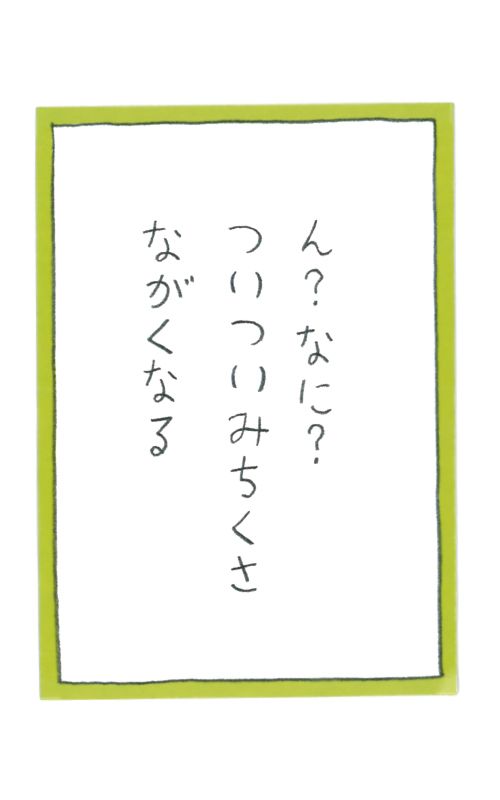 ん？なに？
ついついみちくさ
ながくなる